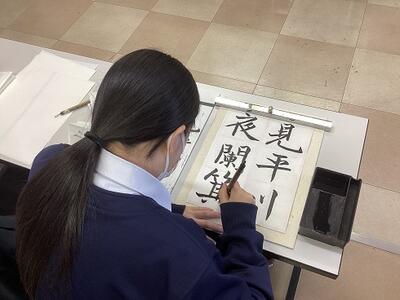 見平川
夜闌箕